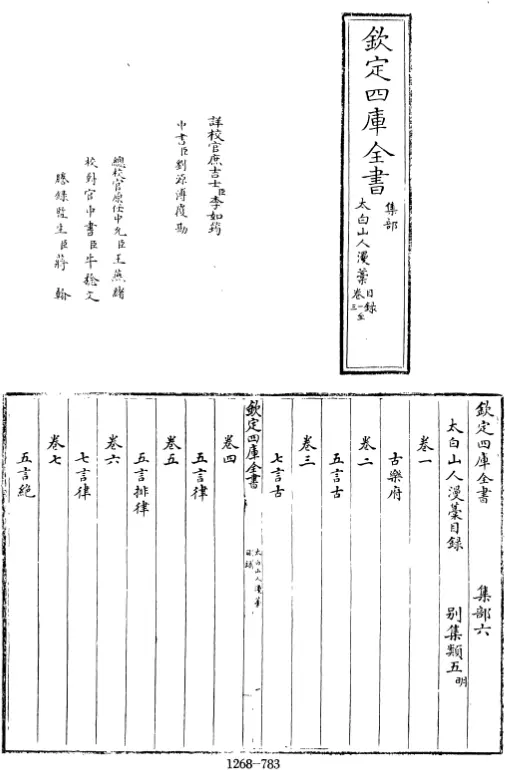 欽定四庫全書
集部
太白山人漫藁
目録
卷一至三
詳校官庶吉士臣李如筠
中書臣劉源溥覆勘
總校官原任中允臣王燕緒
校對官中書臣牛稔文
謄錄監生臣蔣翰
欽定四庫全書 集部六
太白山人漫藁目録 别集類五明
卷一
古樂府
卷二
五言古
卷三
七言古
欽定四庫全書
太白山人漫藁
目録
一
卷四
五言律
卷五
五言排律
卷六
七言律
卷七
五言絶
1268—783